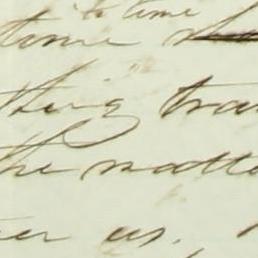 to time
time
this tra
the matte
er us.